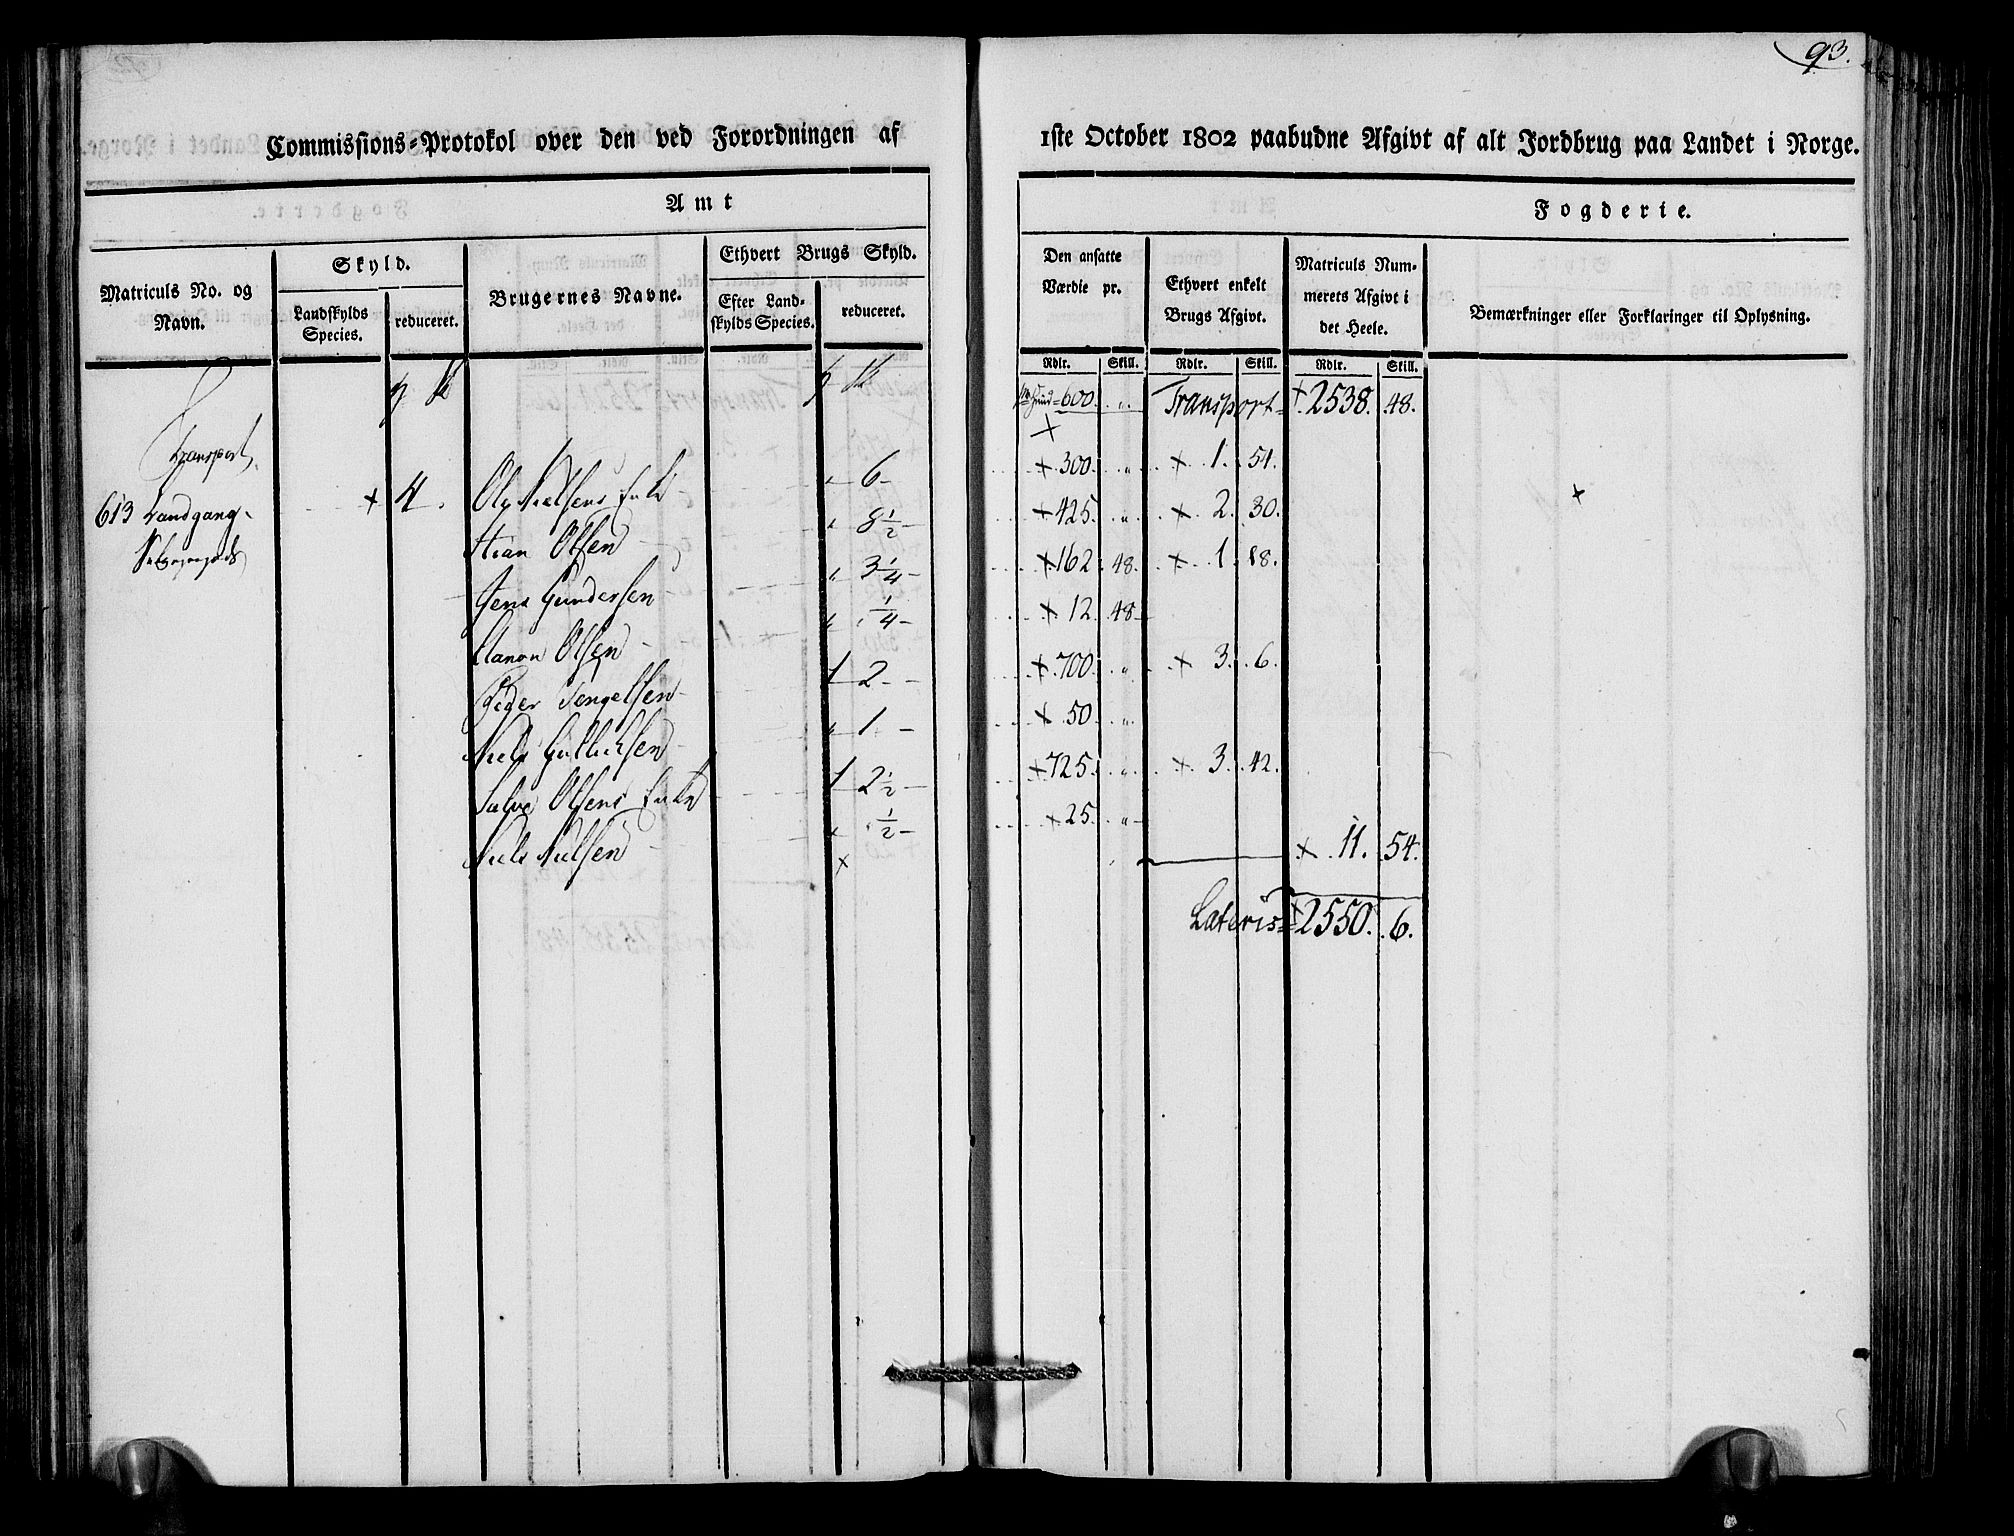 93.
Commissions-Protokol over den ved Forordningen af 1ste October 1802 paabudne Afgivt af alt Jordbrug paa Landet i Norge.
Amt
Fogderie.
Matriculs No. og Navn.
Skyld.
Landskylds Species.
reduceret.
Brugernes Navne.
Ethvert Brugs Skyld.
Efter Landskylds Species.
reduceret.
Den ansatte Værdie pr.
Ethvert enkelt Brugs Afgivt.
Matriculs Nummerets Afgivt i det Heele.
Bemærkninger eller Forklaringer til Oplysning.
Rdlr. Skill. Rdlr. Skill. Rdlr. Skill.
600. " Transport = + 2538. 48.
Transport
613 Landgang + 4. Ole Nielsens Enke " 6 - + 300. " + 1. 51.
Stian Olsen " 8 1/2 - + 425. " + 2. 30.
Jens Gundersen " 3 1/4 - + 162. 48. + 1. 18.
Aanon Olsen " 1/4 - + 12. 48
Peder Tengelsen 1 2 - + 700. " + 3. 6.
Niels Gullichsen " 1 - + 50. "
Salve Olsens Enke 1 2 1/2 - + 725. " + 3. 42.
Niels Nielsen " 1/2 - + 25. "
+ 11. 54.
Lateris = + 2550. 6.